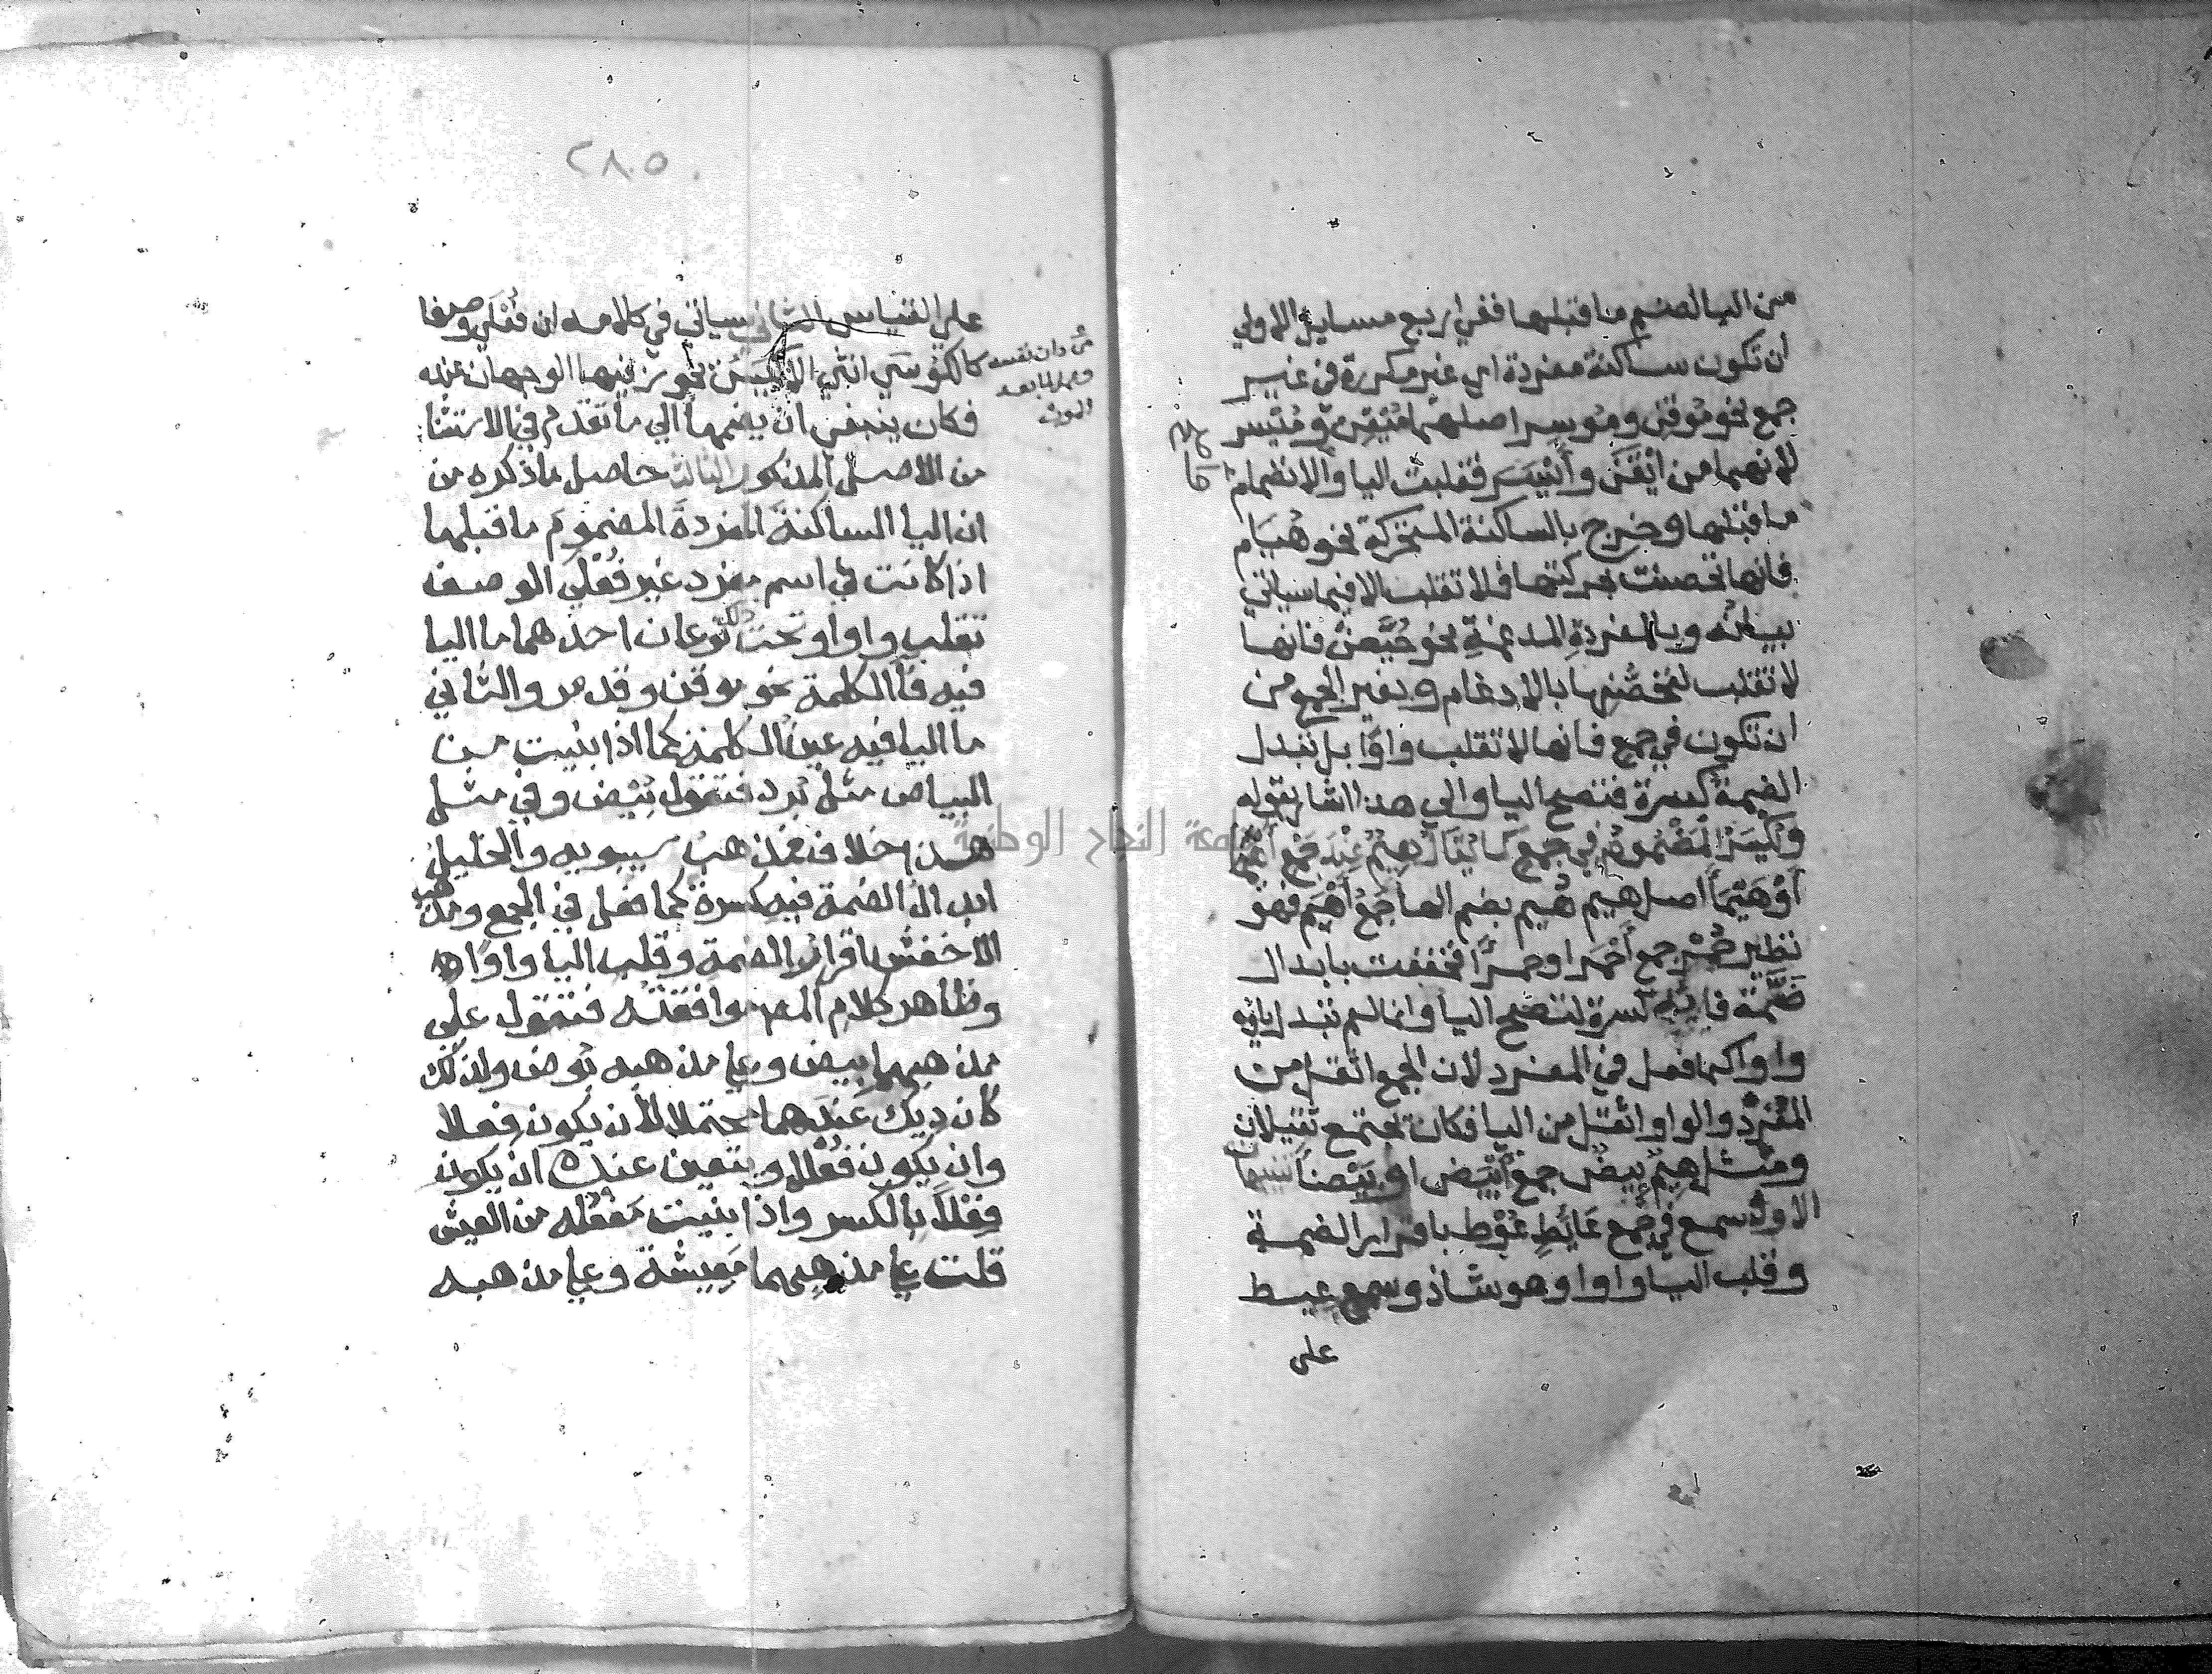 من اليا لضم ما قبلها ففي اربع مسايل الاولي
ان تكون ساكنة مفردة اي غير مكررة في غير
جمع نحو مُوقِن ومُوسِر اصلهما مُيْقِن ومُيْسِر
لانهما من اَيْقَنَ واَيْسَرَ فقلبت اليا واوا لانضمام
ما قبلها وخرج بالساكنة المتحركة نحو هُيَام
فانها تحصنت بحركتها فلا تقلب الا فيما سياتي
بيانه وبالمفردة المدغمة نحو حُيَّض فانها
لا تقلب لتحصنها بالادغام وبغير الجمع من
ان تكون في جمع فانها لا تقلب واوًا بل تبدل
الضمة كسرة فتصح اليا والي هذا اشار بقوله
وَيُكْسَرُ الْمَضْمُومُ في جَمْعٍ كَمَا يُقَالُ هِيمٌ عِنْدَ جَمْعِ
أَوْ هَيْمَآ اصل هِيم هُيم بضم الها جمع أَهْيَم فهو
نظير حُمْر جمع أَحْمَر او حمرآ فخففت بابدال
ضمة فايه كسرة لتصح اليا وانما لم تبدل يايه
واوا كما فعل في المفرد لان الجمع اثقل من
المفرد والواو اثقل من اليا فكان يجتمع ثقيلان
ومثل هيم بِيض جمع أَبْيَض او بَيْضآ تنبيهان
الاول سمع في جمع عَايِط عُوْط باقرار الضمة
وقلب اليا واوا وهو شاذ وسمع عيط
على
٢٨٥
علي القياس الثاني سياتي في كلامه ان فُعْلَي وصفا
كالكُوسَي انثي الاكْيَس يجوز فيها الوجهان عنده
فكان ينبغي ان يضمها الي ما تقدم في الاستثنا
من الاصل المذكور الثالث حاصل ما ذكره من
ان اليا الساكنة المفردة المضموم ما قبلها
اذا كانت في اسم مفرد غير فُعْلَي الوصف
تقلب واوا وتحت ذلك نوعان احدهما ما اليا
فيه فآ الكلمة نحو موقن وقد مر والثاني
ما اليا فيه عين الكلمة كما اذا بنيت من
البياض مثل بُرد فتقول بُيْض وفي مثل
هذا خلاف فمذهب سيبويه والخليل
ابدال الضمة فيه كسرة كما فعل في الجمع ومذهب
الاخفش اقرار الضمة وقلب اليا واوا
وظاهر كلام المص موافقته فتقول علي
مذهبهما بيض وعلي مذهبه بُوض ولذلك
كان ديك عندهما محتملا لان يكون فِعلا
وان يكون فُعْلا ويتعين عنده ان يكون
فِعْلاً بالكسر واذا بنيت مَفعُله من العيش
قلت علي مذهبهما مَعِيشَة وعلي مذهبه